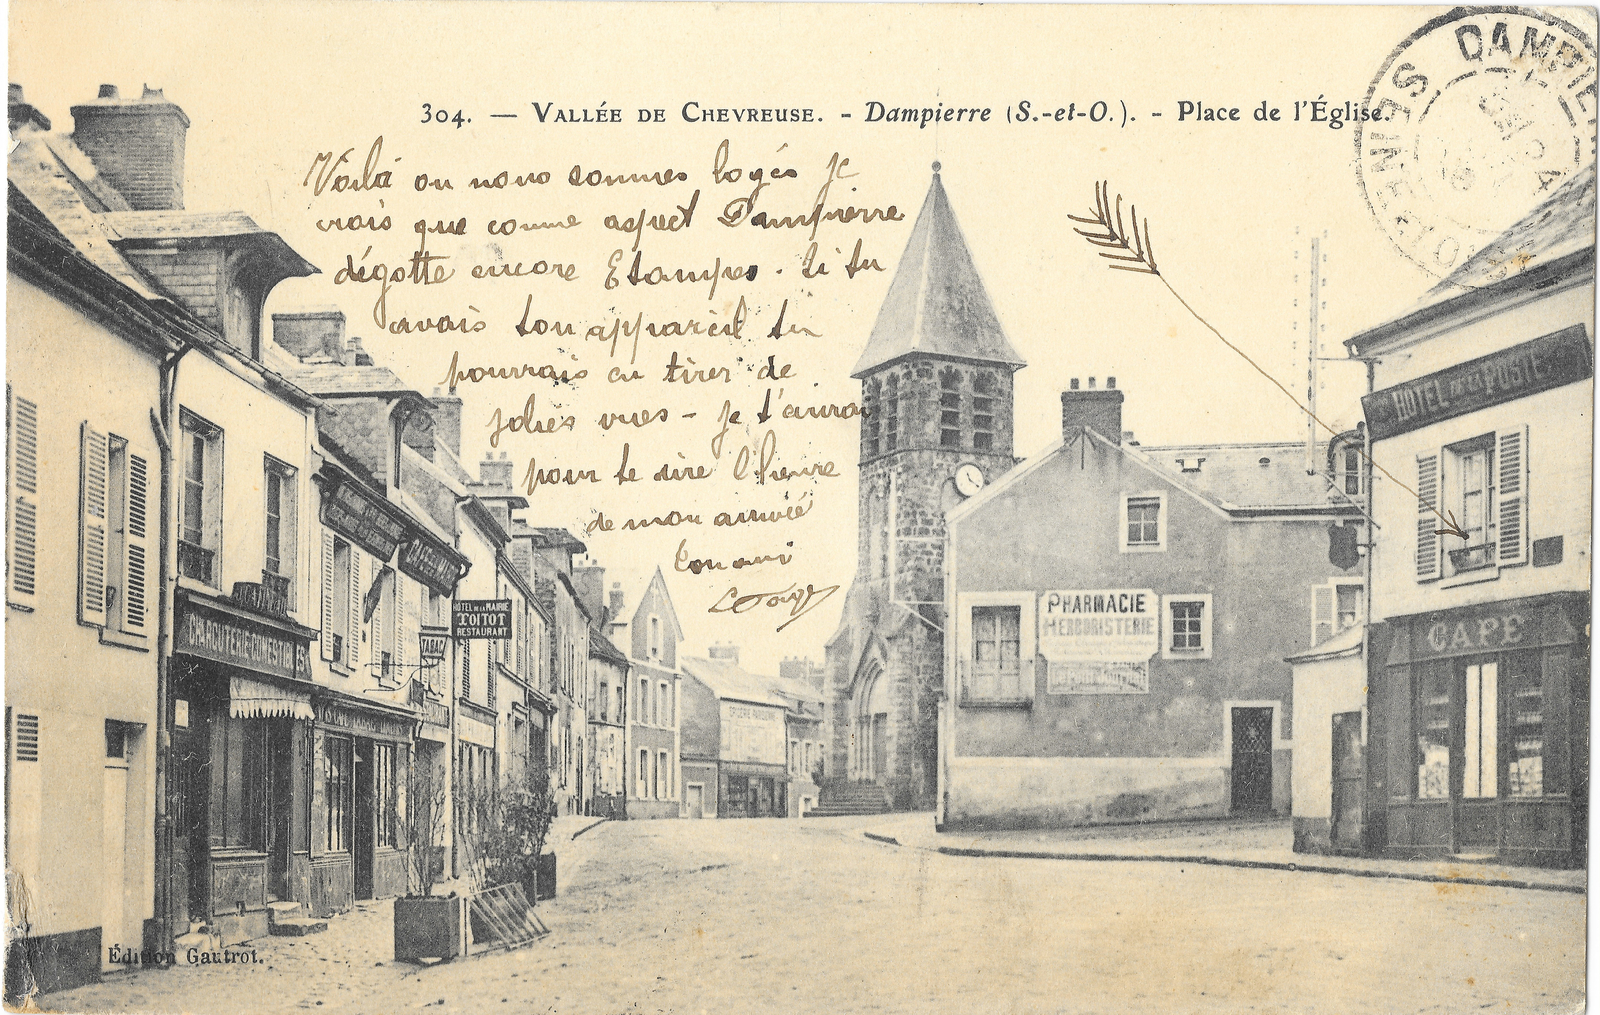 304. — VALLÉE DE CHEVREUSE. - Dampierre (S.-et-O.). - Place de l'Église.
DAMPIERRE
SEINE-ET-OISE
Voilà ou nous sommes logés je
crois que comme aspect Dampierre
dégotte encore Etampes. Si tu
avais ton appareil tu
pourrais en tirer de
jolies vues - je t'écrirai
pour te dire l'heure
de mon arrivée
Ton ami
HOTEL DE LA POSTE
CAFÉ
PHARMACIE
HERBORISTERIE
Le Petit Journal
HÔTEL DE LA MAIRIE
TOITOT
RESTAURANT
TABAC
CHARCUTERIE COMESTIBLES
Édition Gautrot.